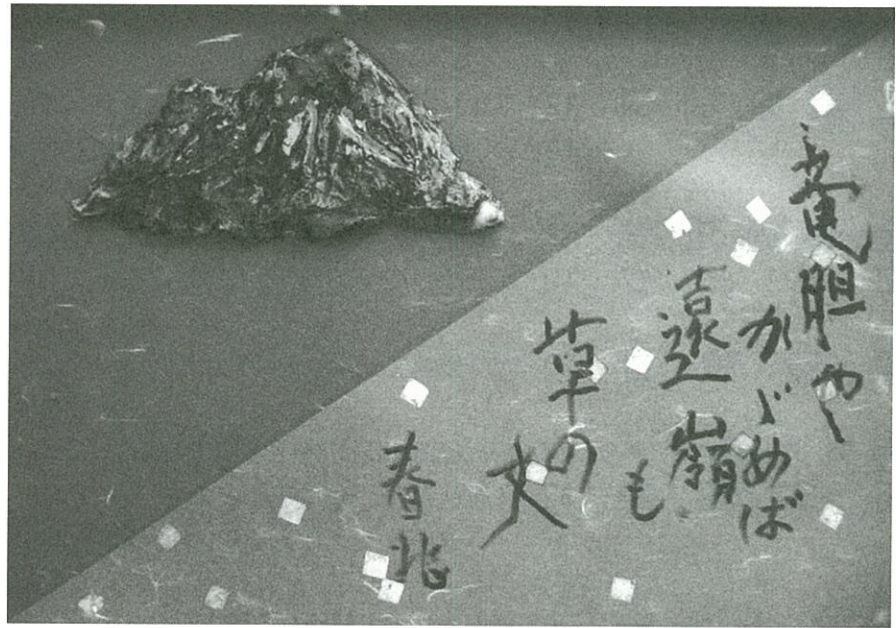 竜胆や
かゞめば
遠嶺も
草の丈
春兆